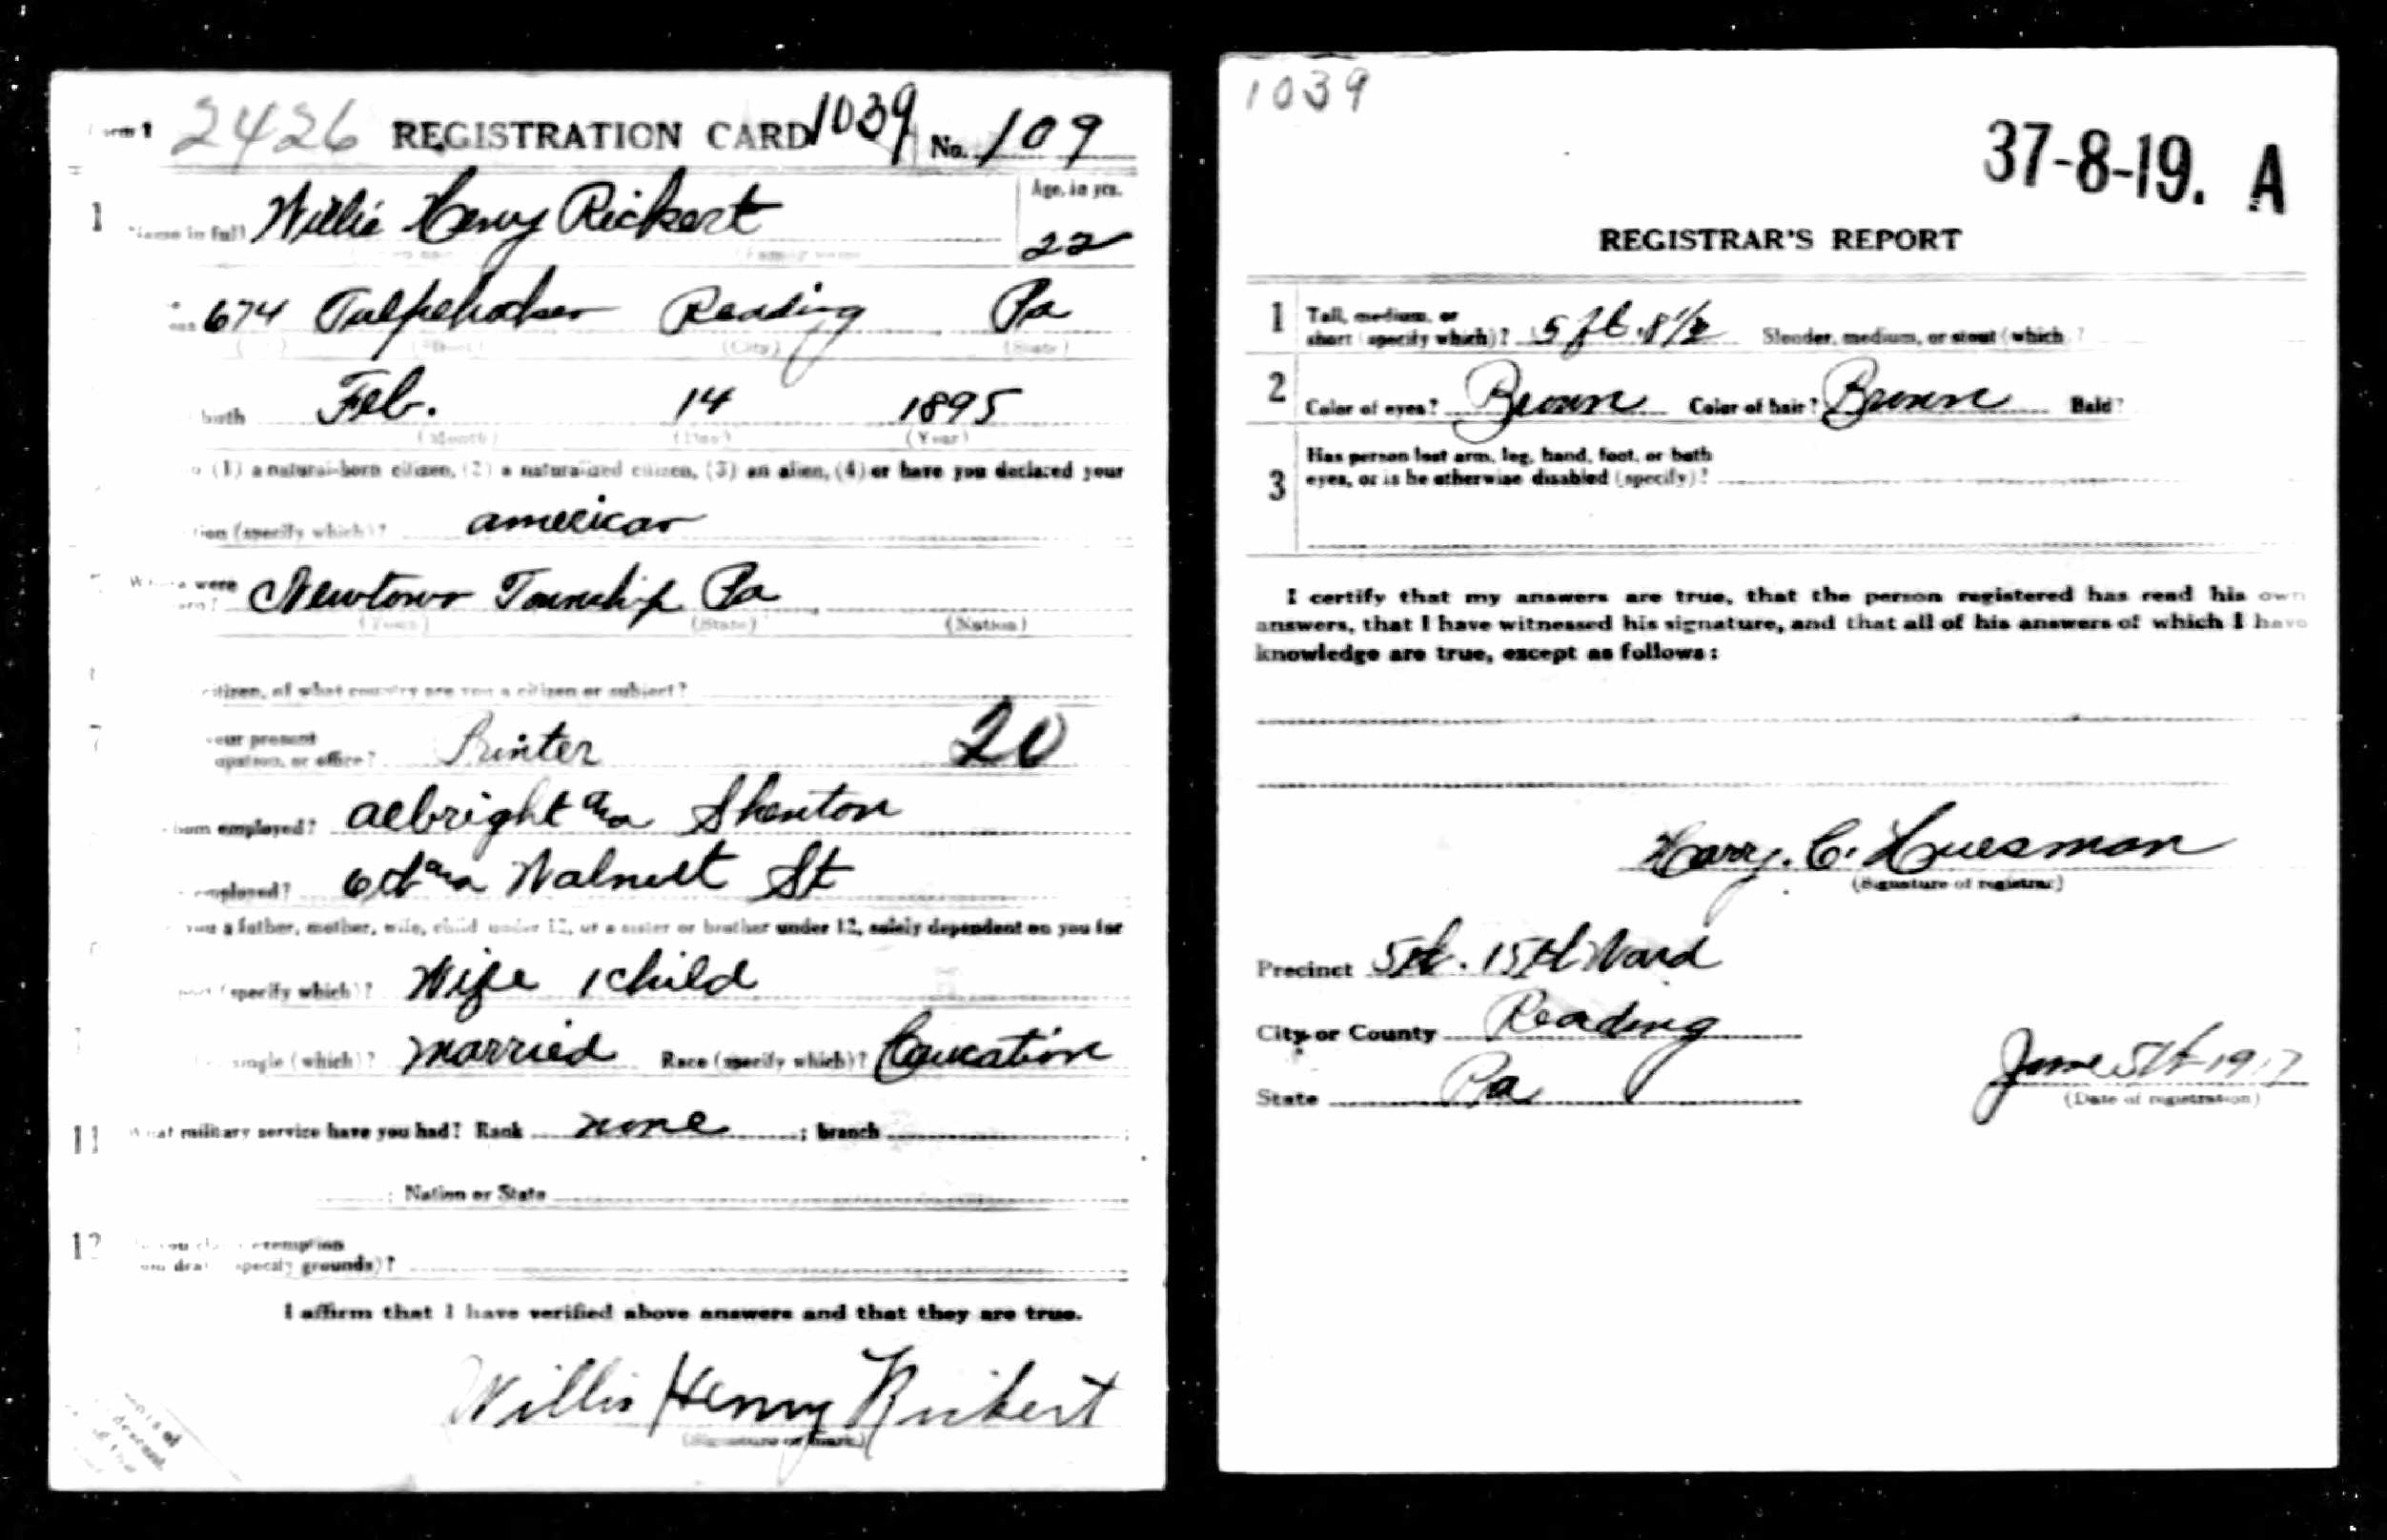 2426 REGISTRATION CARD 1039 No. 109
1 Name in full Willis Henry Rickert Age, in yrs.
22
674 Tulpehocken Reading Pa
(City) (State)
birth Feb. 14 1895
(Month) (Day) (Year)
(1) a natural-born citizen, (2) a naturalized citizen, (3) an alien, (4) or have you declared your
(specify which)? american
were Newtown Township Pa
(Town) (State) (Nation)
citizen, of what country are you a citizen or subject?
7 your present
or office? Printer 20
employed? albright Shenton
Walnut St
a father, mother, wife, child under 12, or a sister or brother under 12, solely dependent on you for
(specify which)? Wife 1 child
single (which)? married Race (specify which)? Caucation
11 What military service have you had? Rank none ; branch ;
; Nation or State
12 you exemption
specify grounds)?
I affirm that I have verified above answers and that they are true.
Willis Henry Rickert
(Signature or mark)
1039
37-8-19. A
REGISTRAR'S REPORT
1 Tall, medium, or
short (specify which)? 5 ft. 8 1/2 Slender, medium, or stout (which ?
2 Color of eyes? Brown Color of hair? Brown Bald?
Has person lost arm, leg, hand, foot, or both
3 eyes, or is he otherwise disabled (specify)?
I certify that my answers are true, that the person registered has read his own
answers, that I have witnessed his signature, and that all of his answers of which I have
knowledge are true, except as follows:
Harry. C. Luesman
(Signature of registrar)
Precinct 5th. 15th Ward
City or County Reading
State Pa June 5th 1917
(Date of registration)